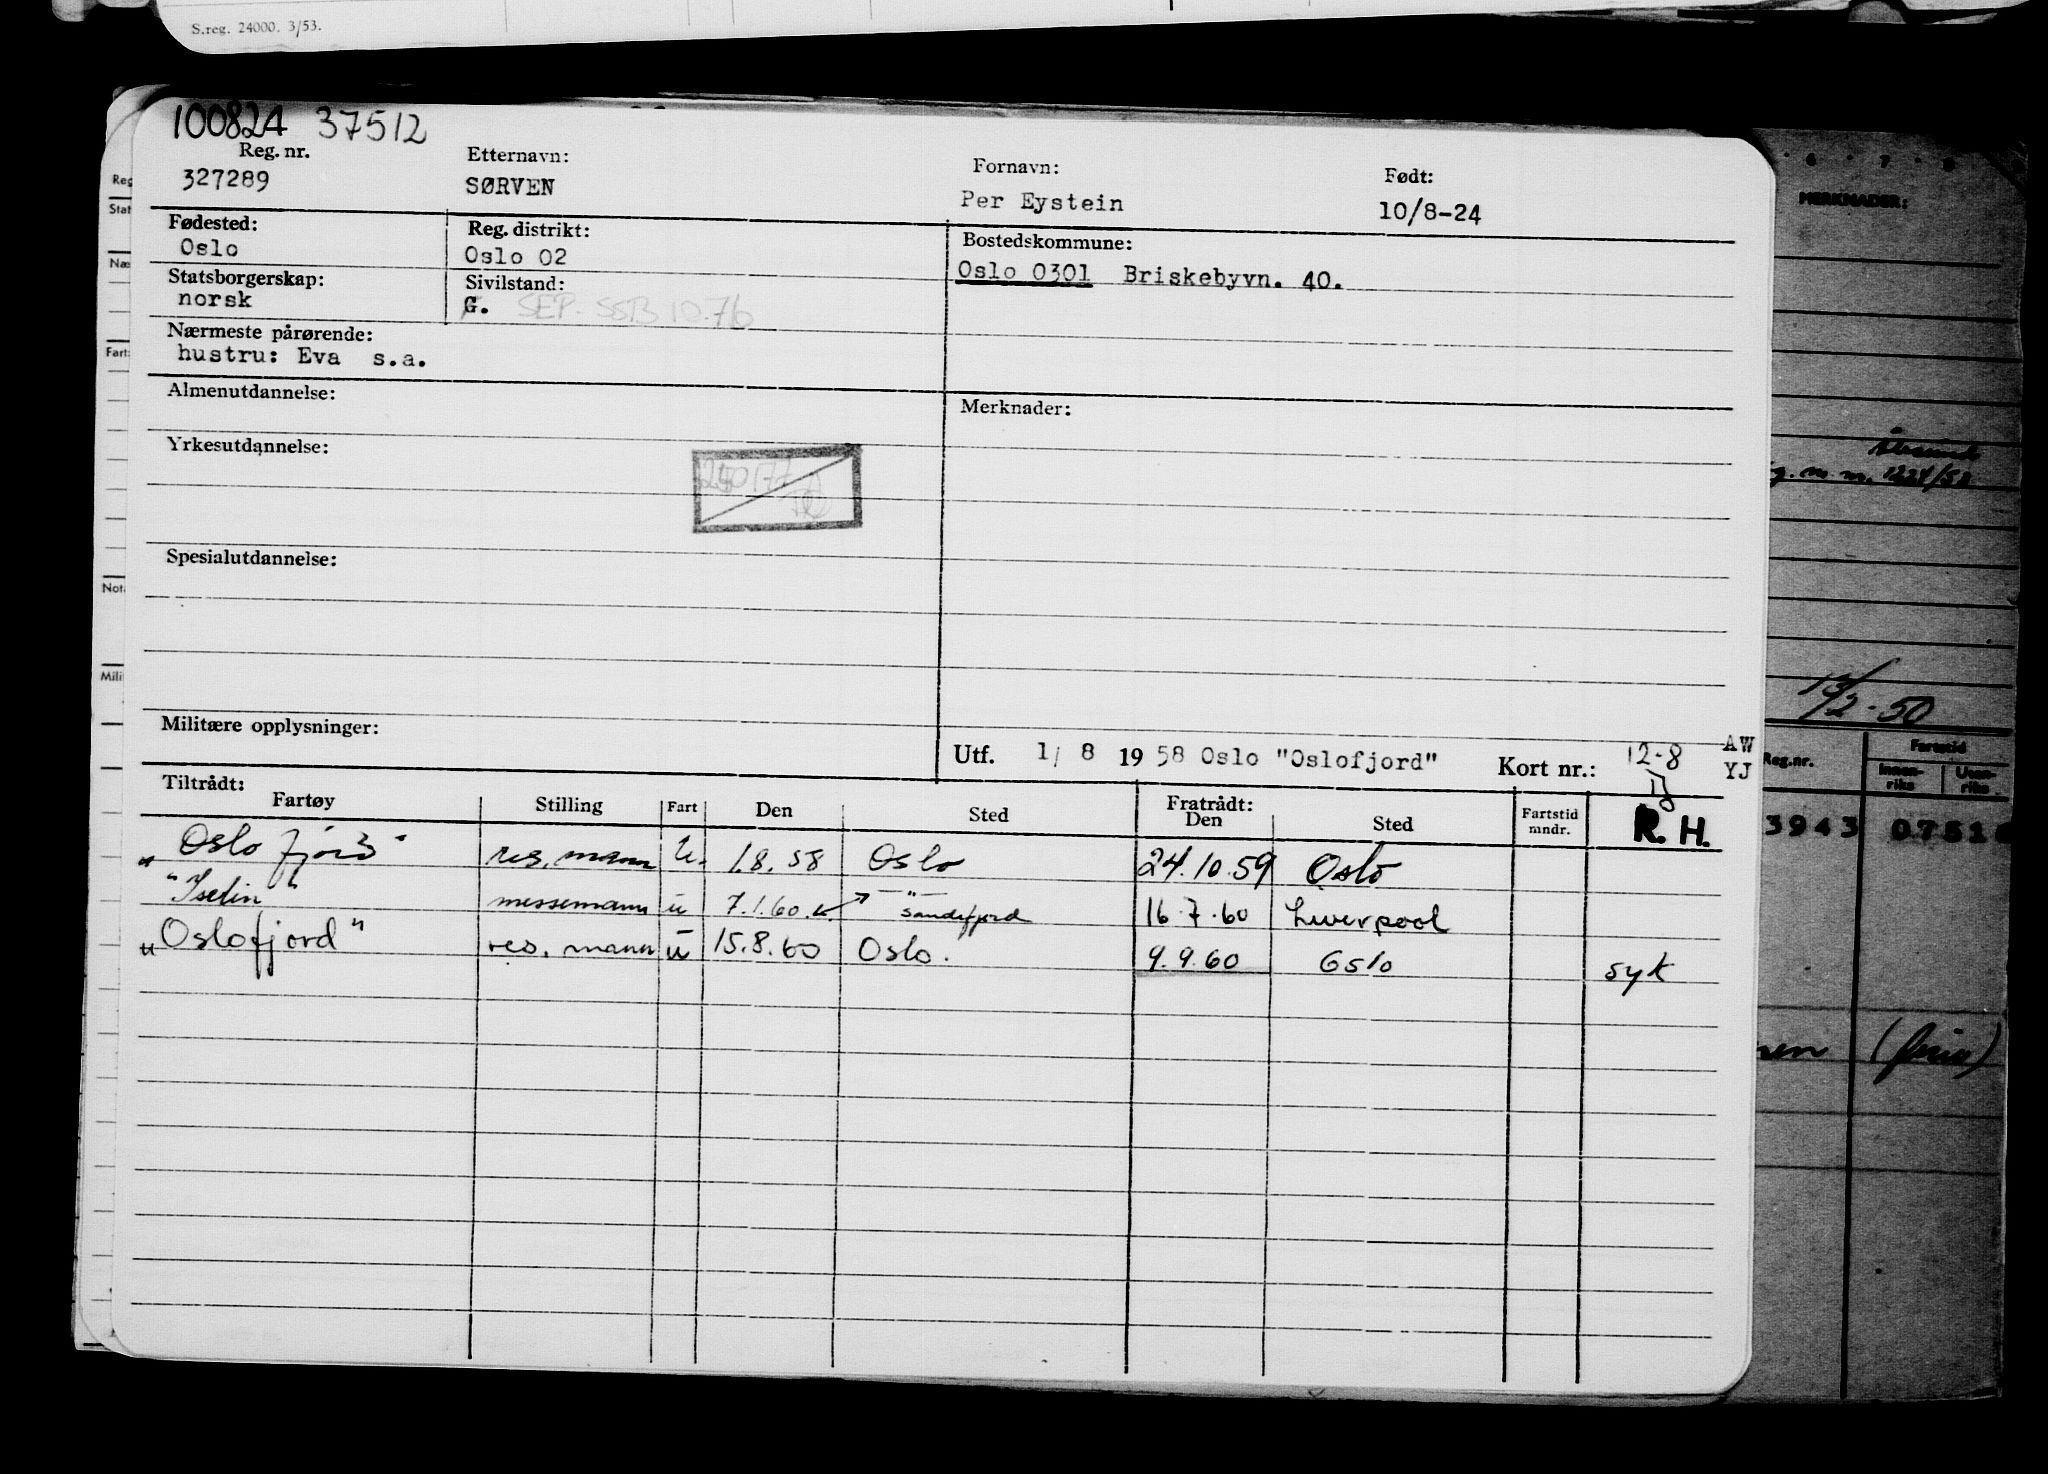 S.reg. 24000. 3/53.
100824 37512
Reg. nr. Etternavn: Fornavn: Født:
327289 SØRVEN Per Eystein 10/8-24
Fødested: Reg. distrikt: Bostedskommune:
Oslo Oslo 02 Oslo 0301 Briskebyvn. 40.
Statsborgerskap: Sivilstand:
norsk G. SEP. SSB 10.76
Nærmeste pårørende:
hustru: Eva s.a.
Almenutdannelse: Merknader:
Yrkesutdannelse:
Spesialutdannelse:
Militære opplysninger:
Utf. 1/ 8 19 58 Oslo "Oslofjord" Kort nr.: 12-8 AW
YJ
Tiltrådt: Fratrådt:
Fartøy Stilling Fart Den Sted Den Sted Fartstid mndr. R. H.
"Oslofjord" res. mann U. 1.8.58 Oslo 24.10.59 Oslo
"Iselin" messemann u 7.1.60 — " — Sandefjord 16.7.60 Liverpool
"Oslofjord" res. mann u 15.8.60 Oslo. 9.9.60 Oslo syk
Reg
Stat
Næ
Fart:
Not
Mili
6 7 8
MERKNADER:
m nr. 1224/58
13/2-50
Reg.nr. Fartstid
Innen-riks Uten-riks
3943 0751